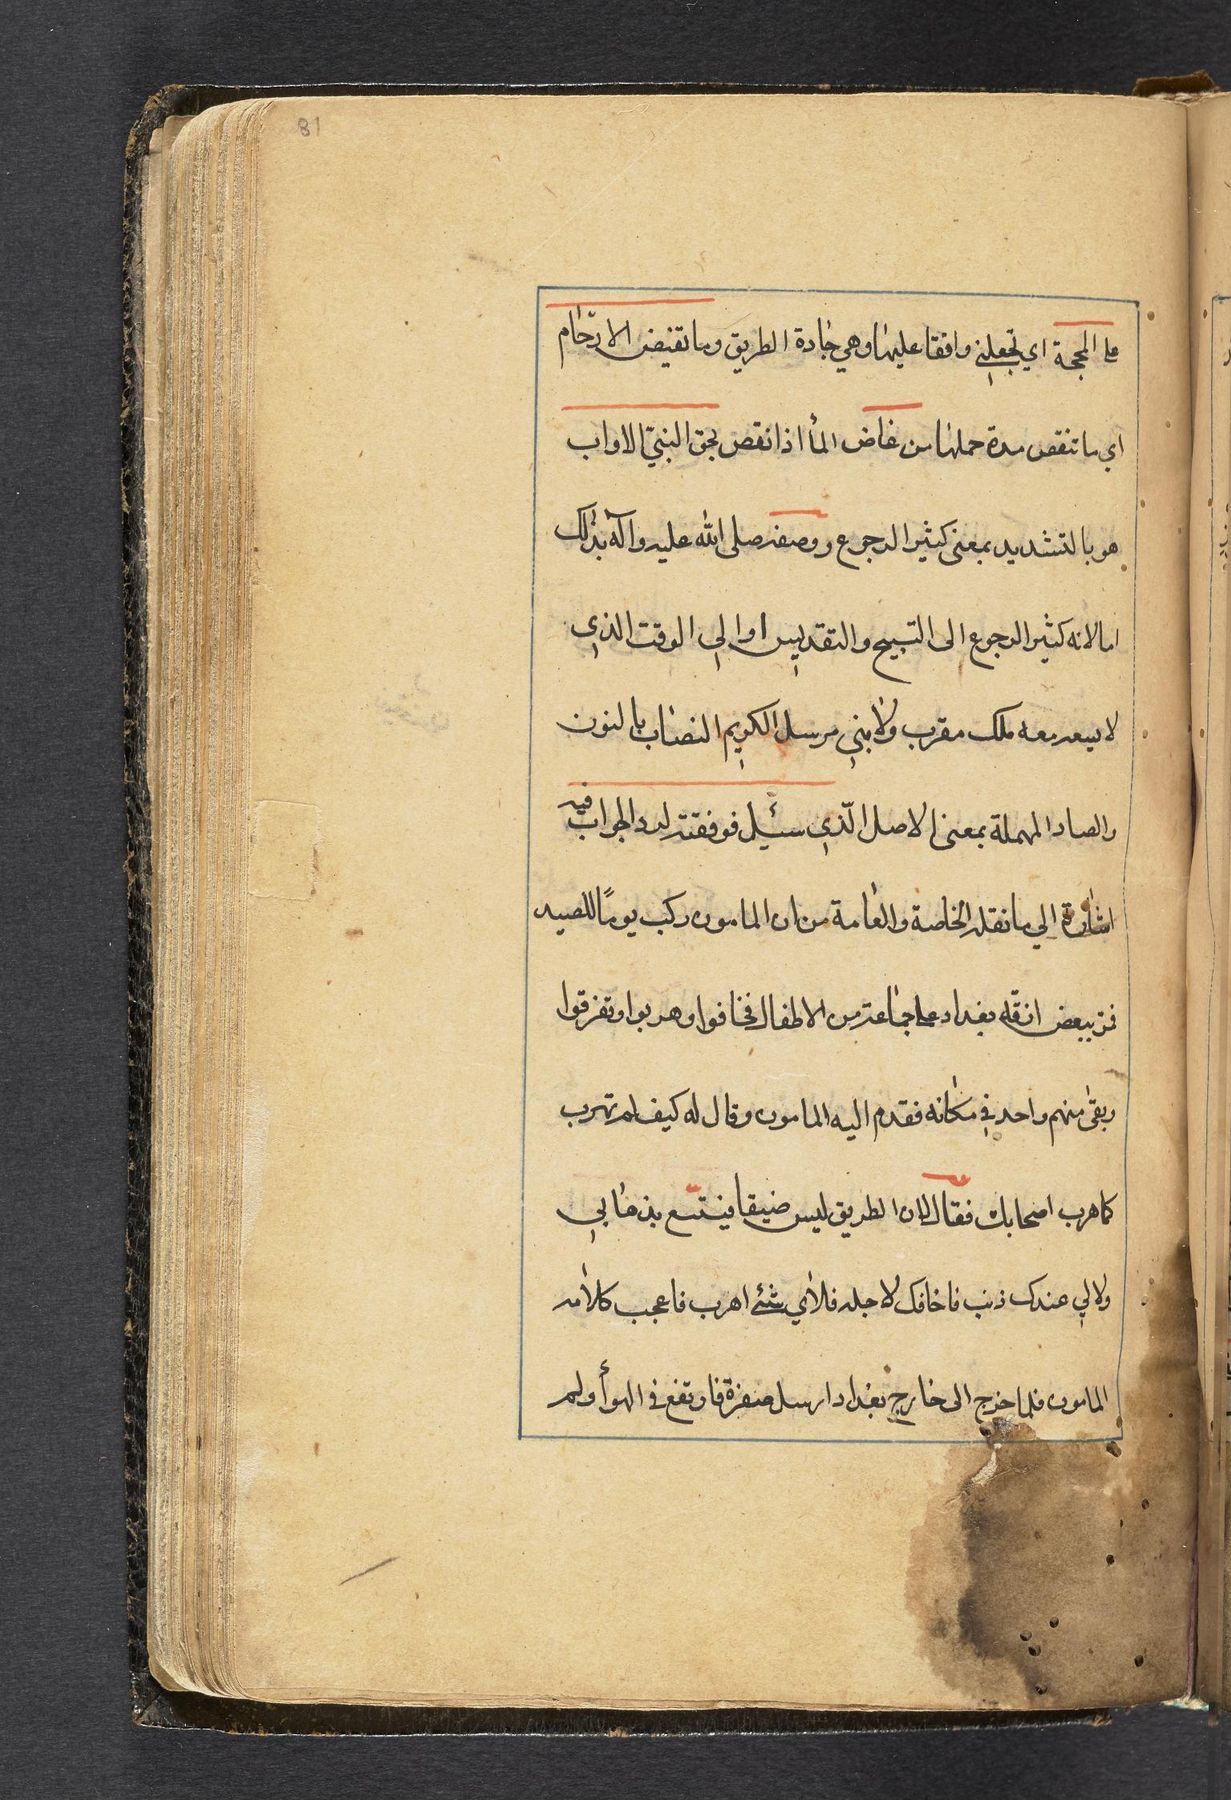 81
على المحجة اي تجعلني واقفا عليها وهي جادة الطريق وما تغيض الارحام
اي ما تنقص مدة حملها من غاض المأ اذا نقص بحق النبيّ الاواب
هو بالتشديد بمعنى كثير الرجوع ووصفه صلى الله عليه وآله بذلك
اما لانه كثير الرجوع الى التسبيح والتقديس او الي الوقت الذي
لا يسعه معه ملك مقرب ولا نبي مرسل الكريم النصاب بالنون
والصاد المهملة بمعنى الاصل الّذي سئيل فوفقته لرد الجواب فيه
اشارة الي ما نقله الخاصة والعامة من ان المامون ركب يومًا للصيد
فمر ببعض ازقة بغداد على جماعة من الاطفال فخافوا وهربوا وتفرقوا
وبقى منهم واحد في مكانه فقدم اليه المامون وقال له كيف لم تهرب
كما هرب اصحابك فقال لان الطريق ليس ضيقا فيتسع بذهابي
ولا لي عندك ذنب فاخافك لاجله فلاي شئ اهرب فاعجب كلامه
المامون فلما خرج الى خارج بغداد ارسل صقره فارتفع في الهوأ ولم